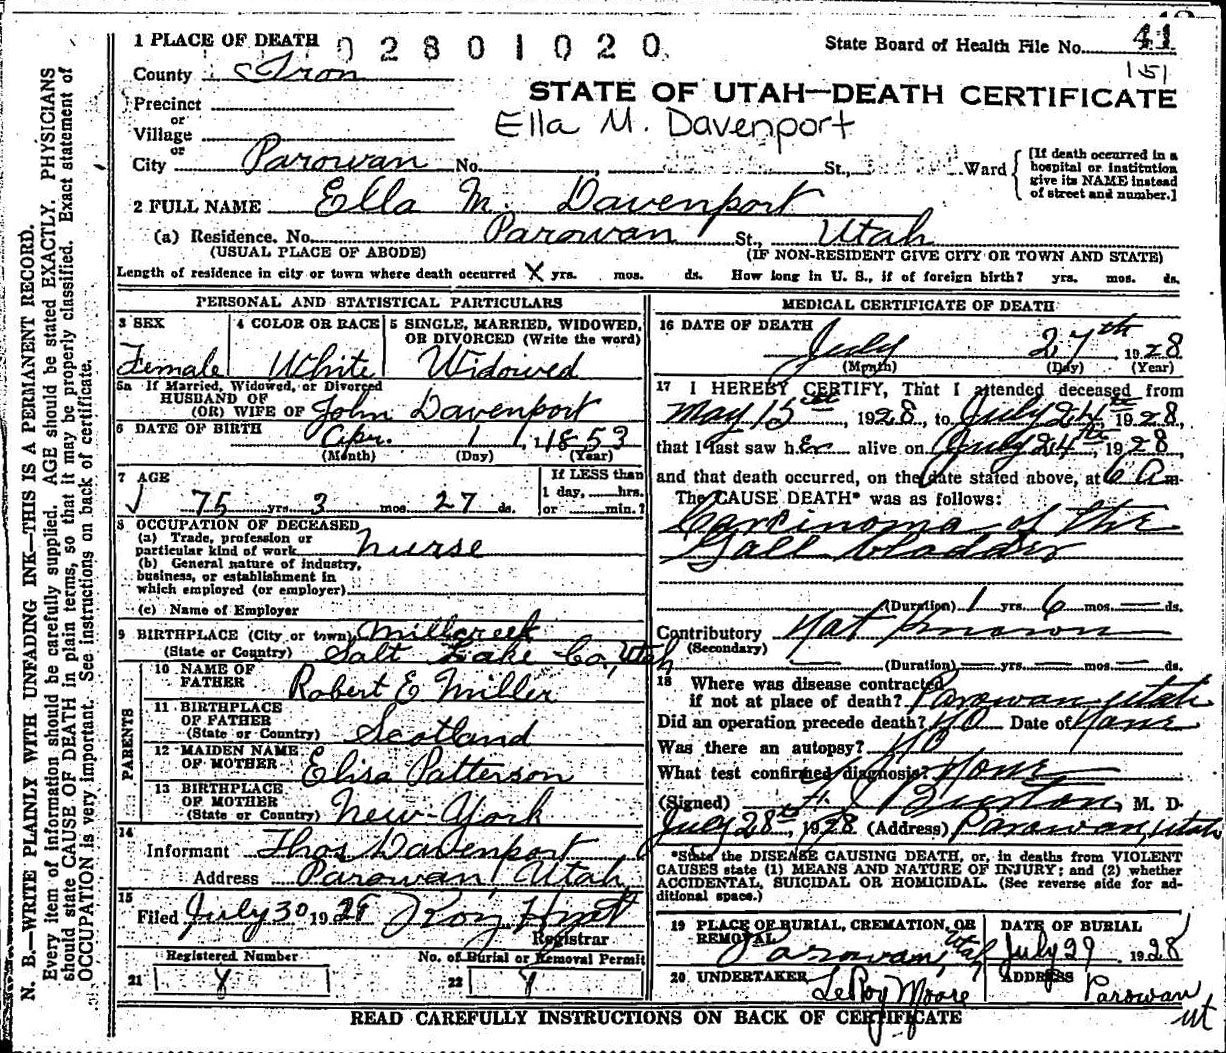 02801020
State Board of Health File No. 41
151
STATE OF UTAH—DEATH CERTIFICATE
Ella M. Davenport
1 PLACE OF DEATH
County Iron
Precinct
or
Village
or
City Parowan No. St., Ward
[If death occurred in a hospital or institution give its NAME instead of street and number.]
2 FULL NAME Ella M. Davenport
(a) Residence. No. Parowan St., Utah
(USUAL PLACE OF ABODE) (IF NON-RESIDENT GIVE CITY OR TOWN AND STATE)
Length of residence in city or town where death occurred X yrs. mos. ds. How long in U. S., if of foreign birth? yrs. mos. ds.
PERSONAL AND STATISTICAL PARTICULARS
3 SEX
Female
4 COLOR OR RACE
White
5 SINGLE, MARRIED, WIDOWED, OR DIVORCED (Write the word)
Widowed
5a If Married, Widowed, or Divorced
HUSBAND OF
(OR) WIFE OF John Davenport
6 DATE OF BIRTH Apr. 1, 1853
(Month) (Day) (Year)
7 AGE
75 yrs. 3 mos. 27 ds.
If LESS than
1 day, hrs.
or min.?
8 OCCUPATION OF DECEASED
(a) Trade, profession or
particular kind of work nurse
(b) General nature of industry,
business, or establishment in
which employed (or employer)
(c) Name of Employer
9 BIRTHPLACE (City or town) Millcreek
(State or Country) Salt Lake Co, Utah
PARENTS
10 NAME OF
FATHER Robert E Miller
11 BIRTHPLACE
OF FATHER
(State or Country) Scotland
12 MAIDEN NAME
OF MOTHER Elisa Patterson
13 BIRTHPLACE
OF MOTHER
(State or Country) New-York
14
Informant Thos Davenport
Address Parowan Utah
15
Filed July 30 1928
Registrar
Registered Number No. of Burial or Removal Permit
21 22
MEDICAL CERTIFICATE OF DEATH
16 DATE OF DEATH
July 27th 1928
(Month) (Day) (Year)
17 I HEREBY CERTIFY, That I attended deceased from
May 15th, 1928, to July 24th 1928,
that I last saw her alive on July 24th, 1928
and that death occurred, on the date stated above, at 6 A m.
The CAUSE DEATH* was as follows:
Carcinoma of the
Gall bladder
(Duration) 1 yrs. 6 mos. — ds.
Contributory Not Known
(Secondary)
(Duration) — yrs. — mos. — ds.
18 Where was disease contracted
if not at place of death? Parowan, Utah
Did an operation precede death? No Date of None
Was there an autopsy? No
What test confirmed diagnosis? None
(Signed) Burton, M. D.
July 28th, 1928 (Address) Parowan, Utah
*State the DISEASE CAUSING DEATH, or, in deaths from VIOLENT
CAUSES state (1) MEANS AND NATURE OF INJURY; and (2) whether
ACCIDENTAL, SUICIDAL OR HOMICIDAL. (See reverse side for additional space.)
19 PLACE OF BURIAL, CREMATION, OR
REMOVAL
Parowan, Utah
DATE OF BURIAL
July 29 1928
20 UNDERTAKER
LeRoy Moore
ADDRESS
Parowan
ut
READ CAREFULLY INSTRUCTIONS ON BACK OF CERTIFICATE
N. B.—WRITE PLAINLY WITH UNFADING INK—THIS IS A PERMANENT RECORD.
Every item of information should be carefully supplied. AGE should be stated EXACTLY. PHYSICIANS
should state CAUSE OF DEATH in plain terms, so that it may be properly classified. Exact statement of
OCCUPATION is very important. See instructions on back of certificate.